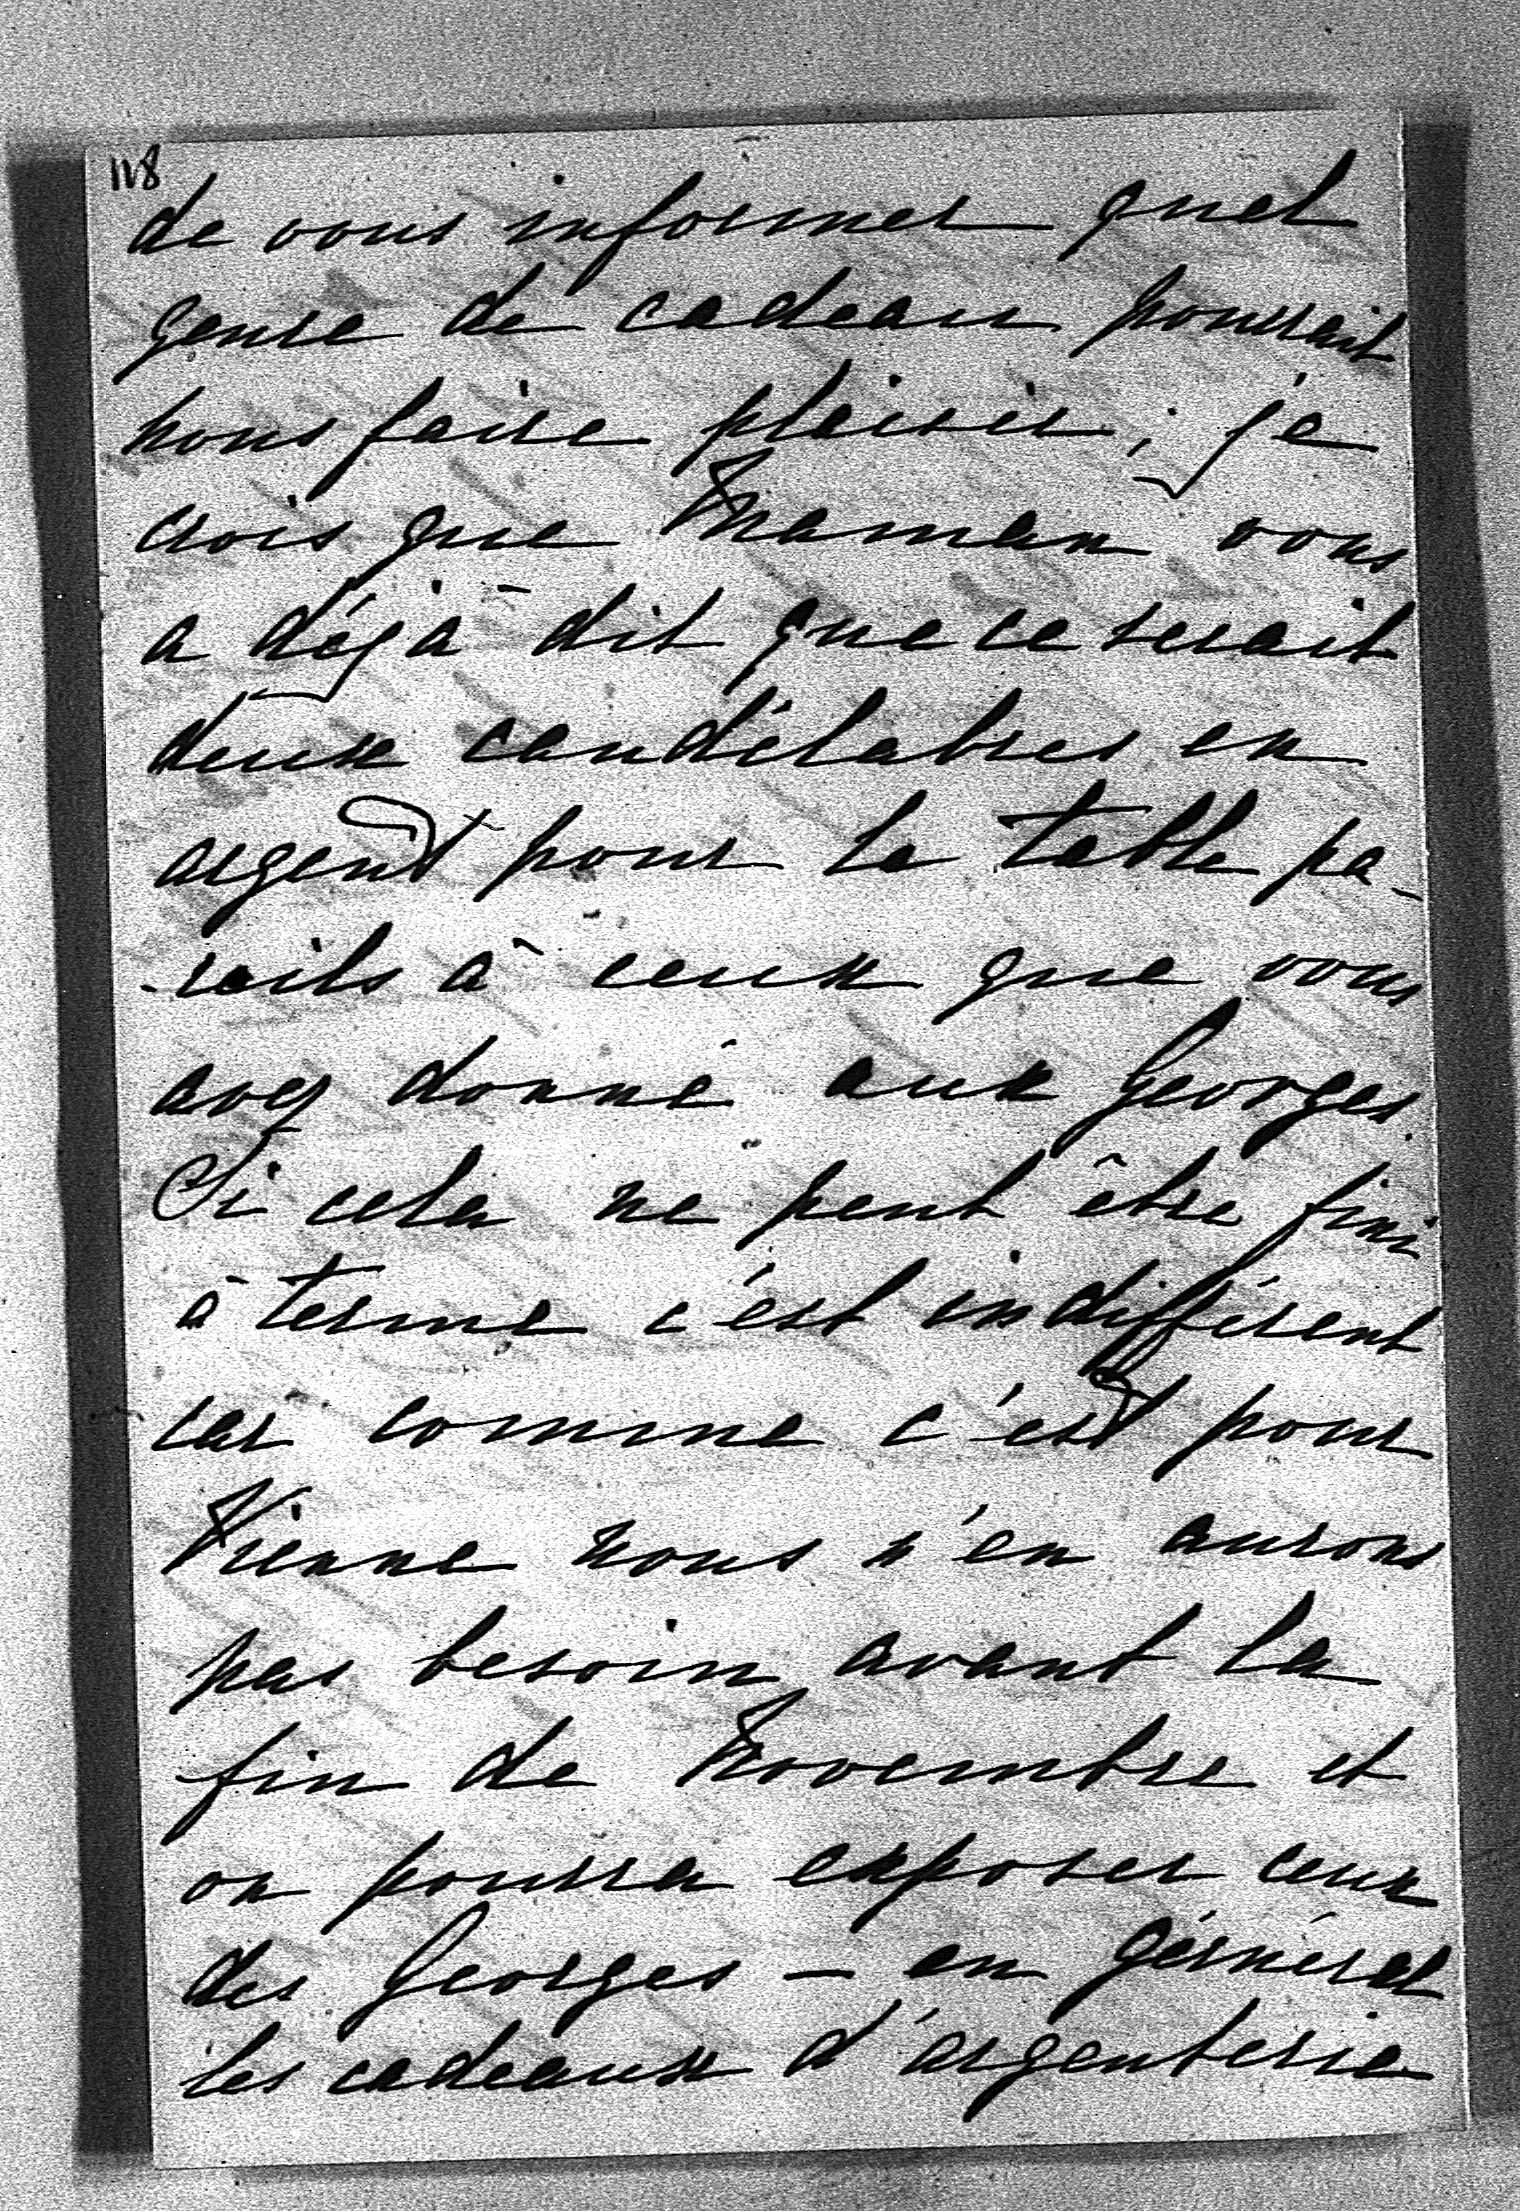 118
de vous informer quel
genre de cadeau pourrait
nous faire plaisir ; je
crois que Maman vous
a déjà dit que ce serait
deux candélabres en
argent pour la table pa-
-reils à ceux que vous
avez donné aux Georges.
Si cela ne peut être fini
à terme c'est indifférent
car comme c'est pour
Vienne nous n'en aurons
pas besoin avant la
fin de Novembre et
on pourra exposer ceux
des Georges — en général
les cadeaux d'argenterie